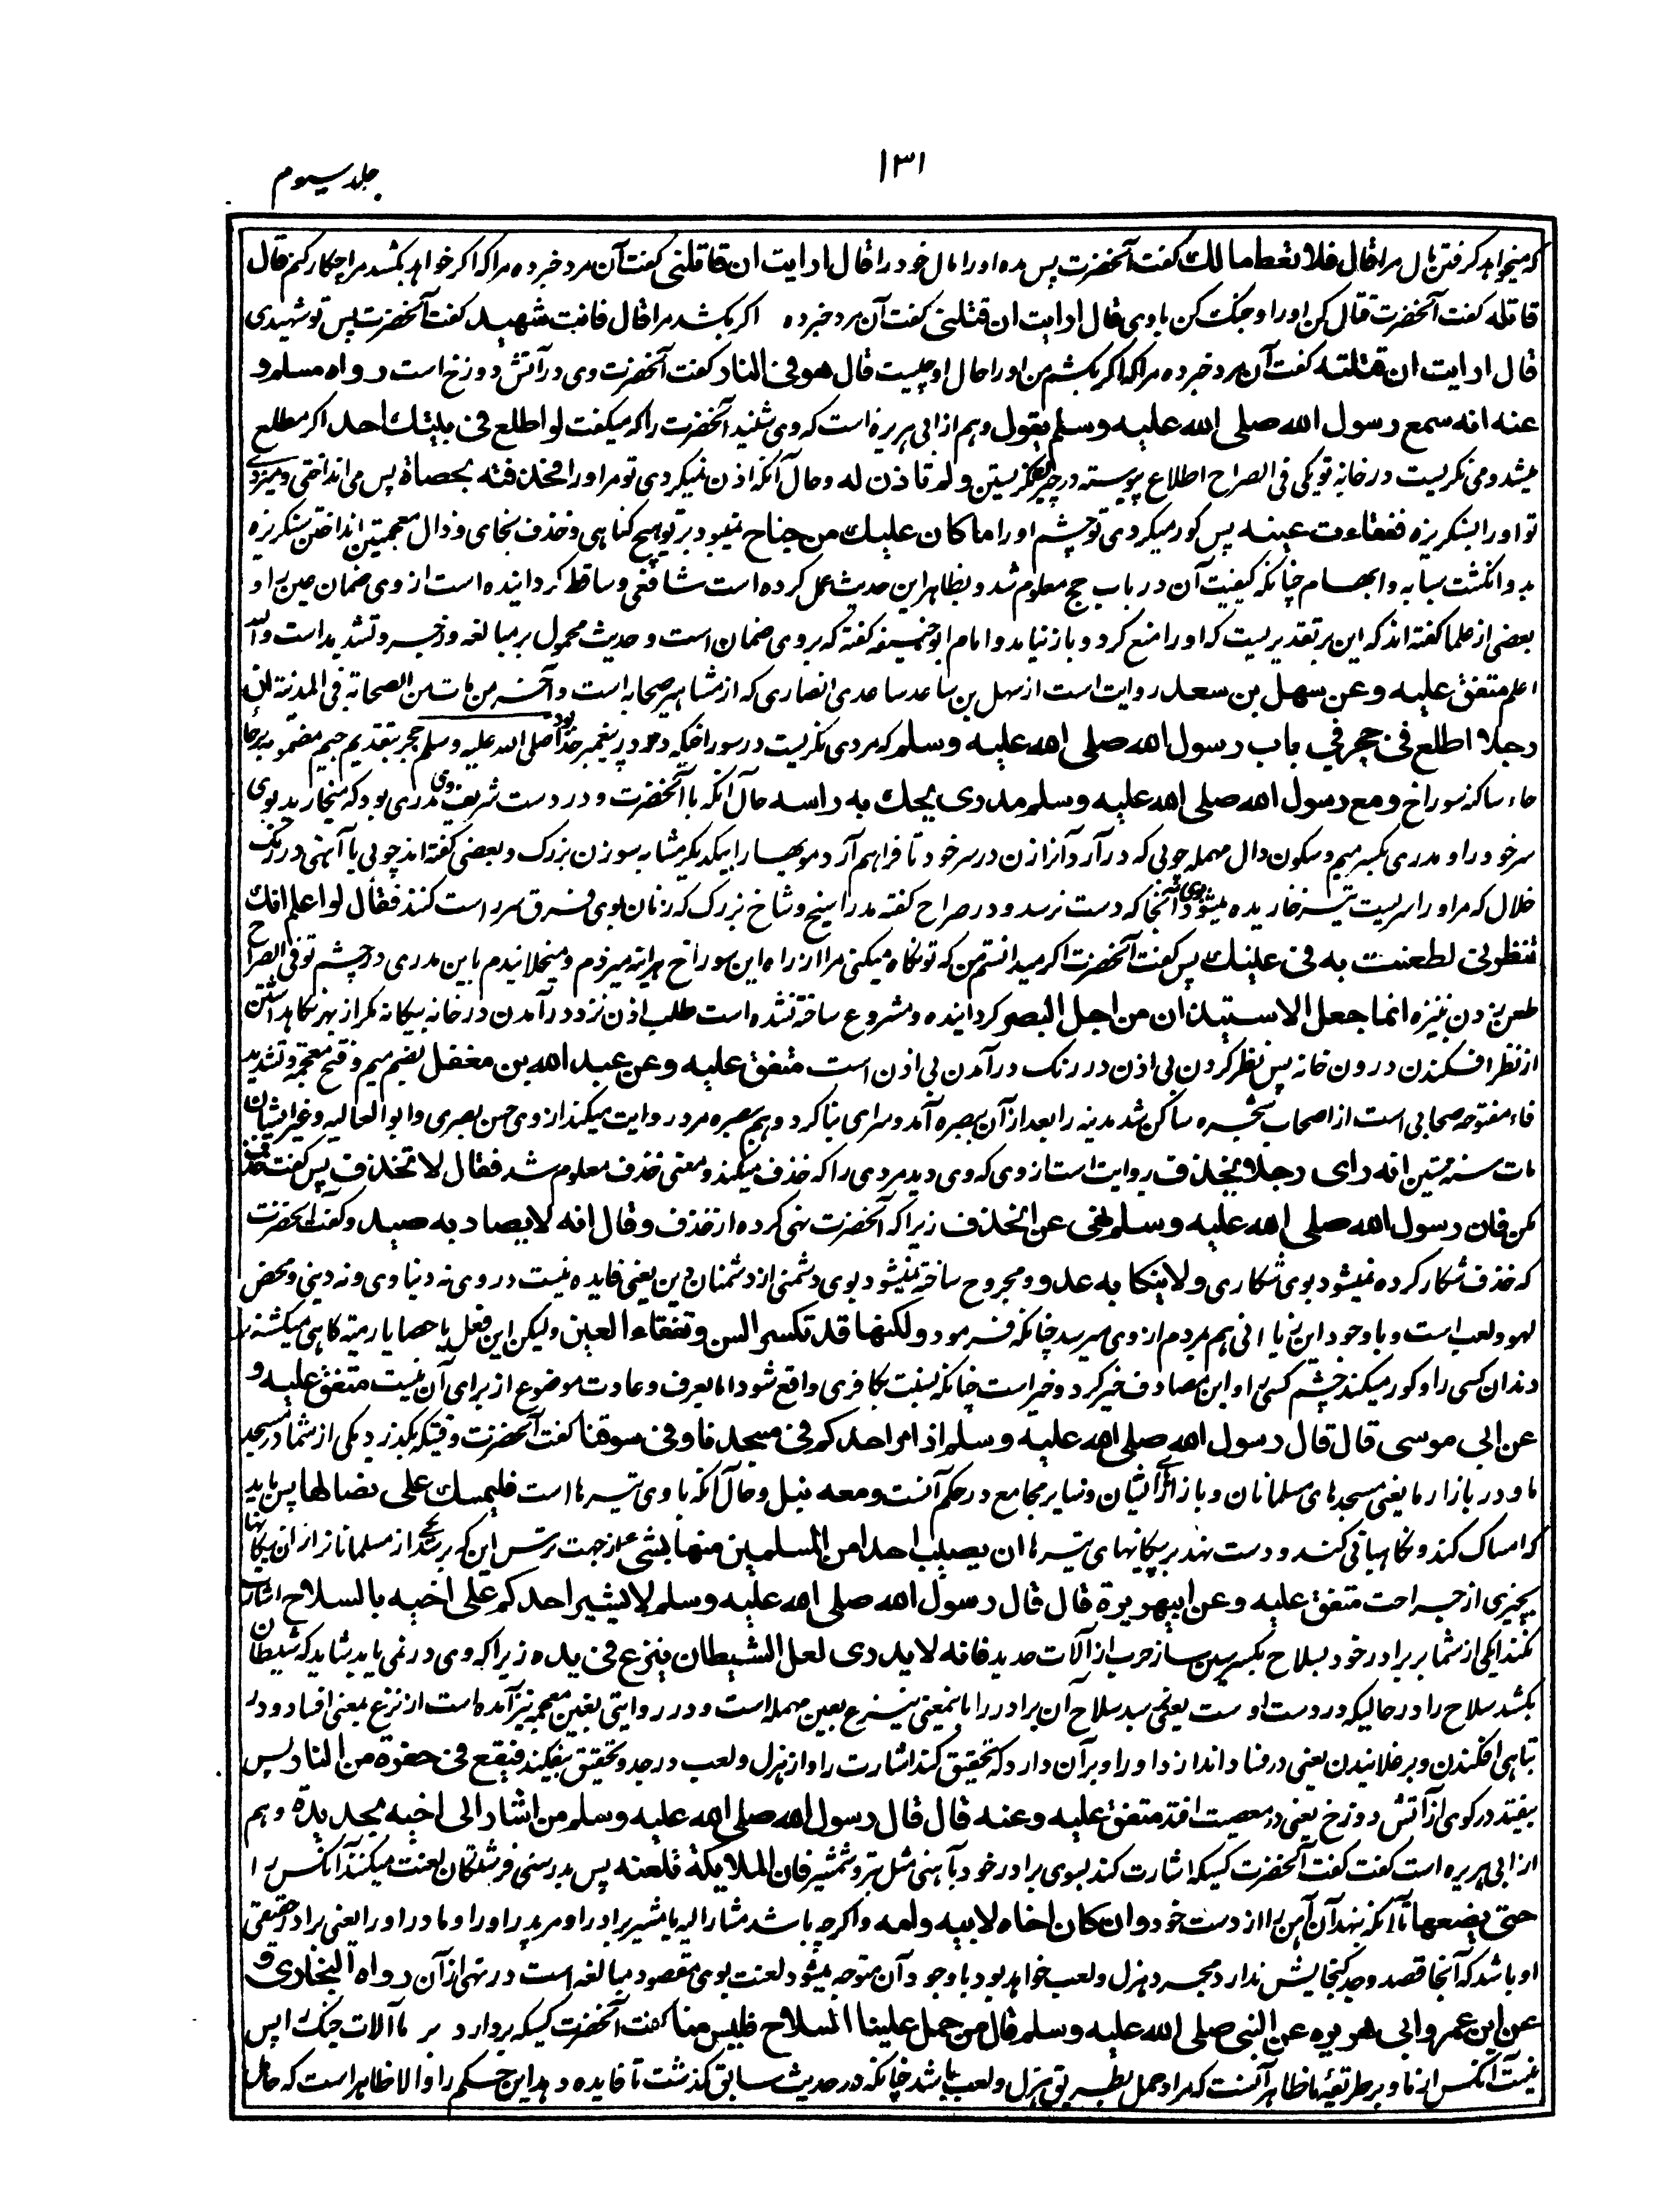 ۱۳۱
جلد سیوم
که میخواهد کرفتن مال مرا قال فلا تعطه مالك کفت آنحضرت پس مده او را مال خود را قال ارایت ان قاتلنی کفت آن مرد خبر ده مرا که اکر خواهد بکشد مرا چکار کنم قال
قاتله کفت آنحضرت قتال کن او را و جنک کن با وی قال ارایت ان قتلنی کفت آن مرد خبر ده اکر بکشد مرا قال فانت شهید کفت آنحضرت پس تو شهیدی
قال ارایت ان قتلته کفت آن مرد خبر ده مرا که اکر بکشم من او را حال او چیست قال هو فی النار کفت آنحضرت وی در آتش دوزخ است رواه مسلم و
عنه انه سمع رسول الله صلی الله علیه وسلم یقول و هم از ابی هریره است که وی شنید آنحضرت را که میکفت لو اطلع فی بیتك احد اکر مطلع
میشد و می نکریست در خانه تو یکی فی الصراح اطلاع پیوسته در چیزی نکریستن ولم تاذن له و حال آنکه اذن نمیکردی تو مر او را فخذفته بحصاة پس می انداختی و میزدی
تو او را بسنکریزه ففقاءت عینه پس کور میکردی تو چشم او را ما کان علیك من جناح نمیبود بر تو هیچ کناهی و خذف بخای و ذال معجمتین انداختن سنکریزه
بدو انکشت سبابه و ابهام چنانکه کیفیت آن در باب حج معلوم شد و بظاهر این حدیث عمل کرده است شافعی و ساقط کردانیده است از وی ضمان عین را و
بعضی از علما کفته اند که این بر تقدیریست که او را منع کرد و باز نیامد و امام ابو حنیفه کفته که بر وی ضمان است و حدیث محمول بر مبالغه و زجر و تشدید است والله
اعلم متفق علیه وعن سهل بن سعد روایت است از سهل بن سا عد ساعدی انصاری که از مشاهیر صحابه است و آخر من مات من الصحابة فی المدینة ان
رجلا اطلع فی جحر فی باب رسول الله صلی الله علیه وسلم که مردی نکریست در سوراخیکه بود در در پیغمبر خدا صلی الله علیه وسلم جحر بتقدیم جیم مضمومه برحا
حاء ساکنه سوراخ ومع رسول الله صلی الله علیه وسلم مدری یحك به راسه حال آنکه با آنحضرت و در دست شریف وی مدری بود که میخارید بوی
سر خود را و مدری بکسر میم و سکون دال مهمله چوبی که در آرد آنرا زن در سر خود تا فراهم آرد مویها را بیکدیکر مشابه سوزن بزرک و بعضی کفته اند چوبی یا آهنی در رنک
خلال که مر او را سریست تیز خاریده میشود بوی تا آنجا که دست نرسد و در صراح کفته مدرا سیخ و شاخ بزرک که زنان بوی فرق سر راست کنند فقال لو اعلم انك
تنظرنی لطعنت به فی عینك پس کفت آنحضرت اکر میدانستم من که تو نکاه میکنی مرا از راه این سوراخ هراینه میزدم و میخلانیدم باین مدری در چشم تو فی الصراح
طعن زدن بنیزه انما جعل الاستیذان من اجل البصر کردانیده و مشروع ساخته نشده است طلب اذن نزد درآمدن در خانه بیکانه مکر از بهر نکاهداشتن
از نظر افکندن درون خانه پس نظر کردن بی اذن در رنک درآمدن بی اذن است متفق علیه وعن عبد الله بن مغفل بضم میم و فتح معجمه و تشدید
فاء مفتوحه صحابی است از اصحاب شجره ساکن شد مدینه را بعد از آن ببصره آمد و سرای بنا کرد و هم ببصره مرد روایت میکند از وی حسن بصری و ابو العالیه و غیر ایشان
مات سنه ستین انه رای رجلا یخذف روایت است از وی که وی دید مردی را که خذف میکند و معنی خذف معلوم شد فقال لا تخذف پس کفت خذف
مکن فان رسول الله صلی الله علیه وسلم نهی عن الخذف زیرا که آنحضرت نهی کرده از خذف وقال انه لا یصاد به صید و کفت آنحضرت
که خذف شکار کرده نمیشود بوی شکاری ولا ینکا به عدو و مجروح ساخته نمیشود بوی دشمنی از دشمنان دین یعنی فایده نیست در وی نه دنیاوی و نه دینی و محض
لهو و لعب است و با وجود این زیانی هم بمردم از وی میرسد چنانکه فرمود ولکنها قد تکسر السن وتفقاء العین ولیکن این فعل یا حصا یا رمیته کاهی میکشند
دندان کسی را و کور میکند چشم کسی را و این مصادف خیر کرد و خیر است چنانکه نسبت بکافری واقع شود اما بعرف و عادت موضوع از برای آن نیست متفق علیه و
عن ابی موسی قال قال رسول الله صلی الله علیه وسلم اذا مر احدکم فی مسجدنا وفی سوقنا کفت آنحضرت وقتیکه بکذرد یکی از شما در مسجد
ما و در بازار ما یعنی مسجدهای مسلمانان و بازارهای ایشان و سایر مجامع در حکم آنست ومعه نبل و حال آنکه با وی تیرها است فلیمسك علی نصالها پس باید
که امساک کند و نکاهبانی کند و دست نهد بر پیکانهای تیرها ان یصیب احدا من المسلمین منها بشی از جهت ترس این که برسد از مسلمانان از آن پیکانها
بچیزی از جراحت متفق علیه وعن ابیهریرة قال قال رسول الله صلی الله علیه وسلم لا یشیر احدکم علی اخیه بالسلاح اشارت
نکند یکی از شما بر برادر خود بسلاح بکسر سین ساز حرب از آلات حدید فانه لا یدری لعل الشیطان ینزع فی یده زیرا که وی در نمی یابد شاید که شیطان
بکشد سلاح را در حالیکه در دست اوست یعنی برسد سلاح آن برادر را باینمعنی ینزع بعین مهمله است و در روایتی بغین معجمه نیز آمده است از نزغ بمعنی افساد و در
تباهی افکندن و برخلانیدن یعنی در فساد اندازد او را و بر آن دارد که تحقیق کند اشارت را و از هزل و لعب در جد و تحقیق بیفکند فیقع فی حفرة من النار پس
بیفتد در کوی از آتش دوزخ یعنی در معصیت افتد متفق علیه وعنه قال قال رسول الله صلی الله علیه وسلم من اشار الی اخیه بحدیدة و هم
از ابی هریره است کفت کفت آنحضرت کسیکه اشارت کند بسوی برادر خود بآهنی مثل تیر و شمشیر فان الملایکة تلعنه پس بدرستی فرشتکان لعنت میکنند آنکس را
حتی یضعها تا آنکه بنهد آن آهن را از دست خود وان کان اخاه لابیه وامه و اکرچه باشد مشار الیه یا مشیر برادر او مر پدر او را و مادر او را یعنی برادر حقیقی
او باشد که آنجا قصد و جد کنجایش ندارد مجرد هزل و لعب خواهد بود با وجود آن متوجه میشود لعنت بوی مقصود مبالغه است در نهی از آن رواه البخاری و
عن ابن عمر وابی هریرة عن النبی صلی الله علیه وسلم قال من حمل علینا السلاح فلیس منا کفت آنحضرت کسیکه بردارد بر ما آلات جنک را پس
نیست آنکس از ما و بر طریقهٔ ما ظاهر آنست که مراد حمل بطریق هزل و لعب باشد چنانکه در حدیث سابق کذشت تا فایده دهد این حکم را والا ظاهر است که حال